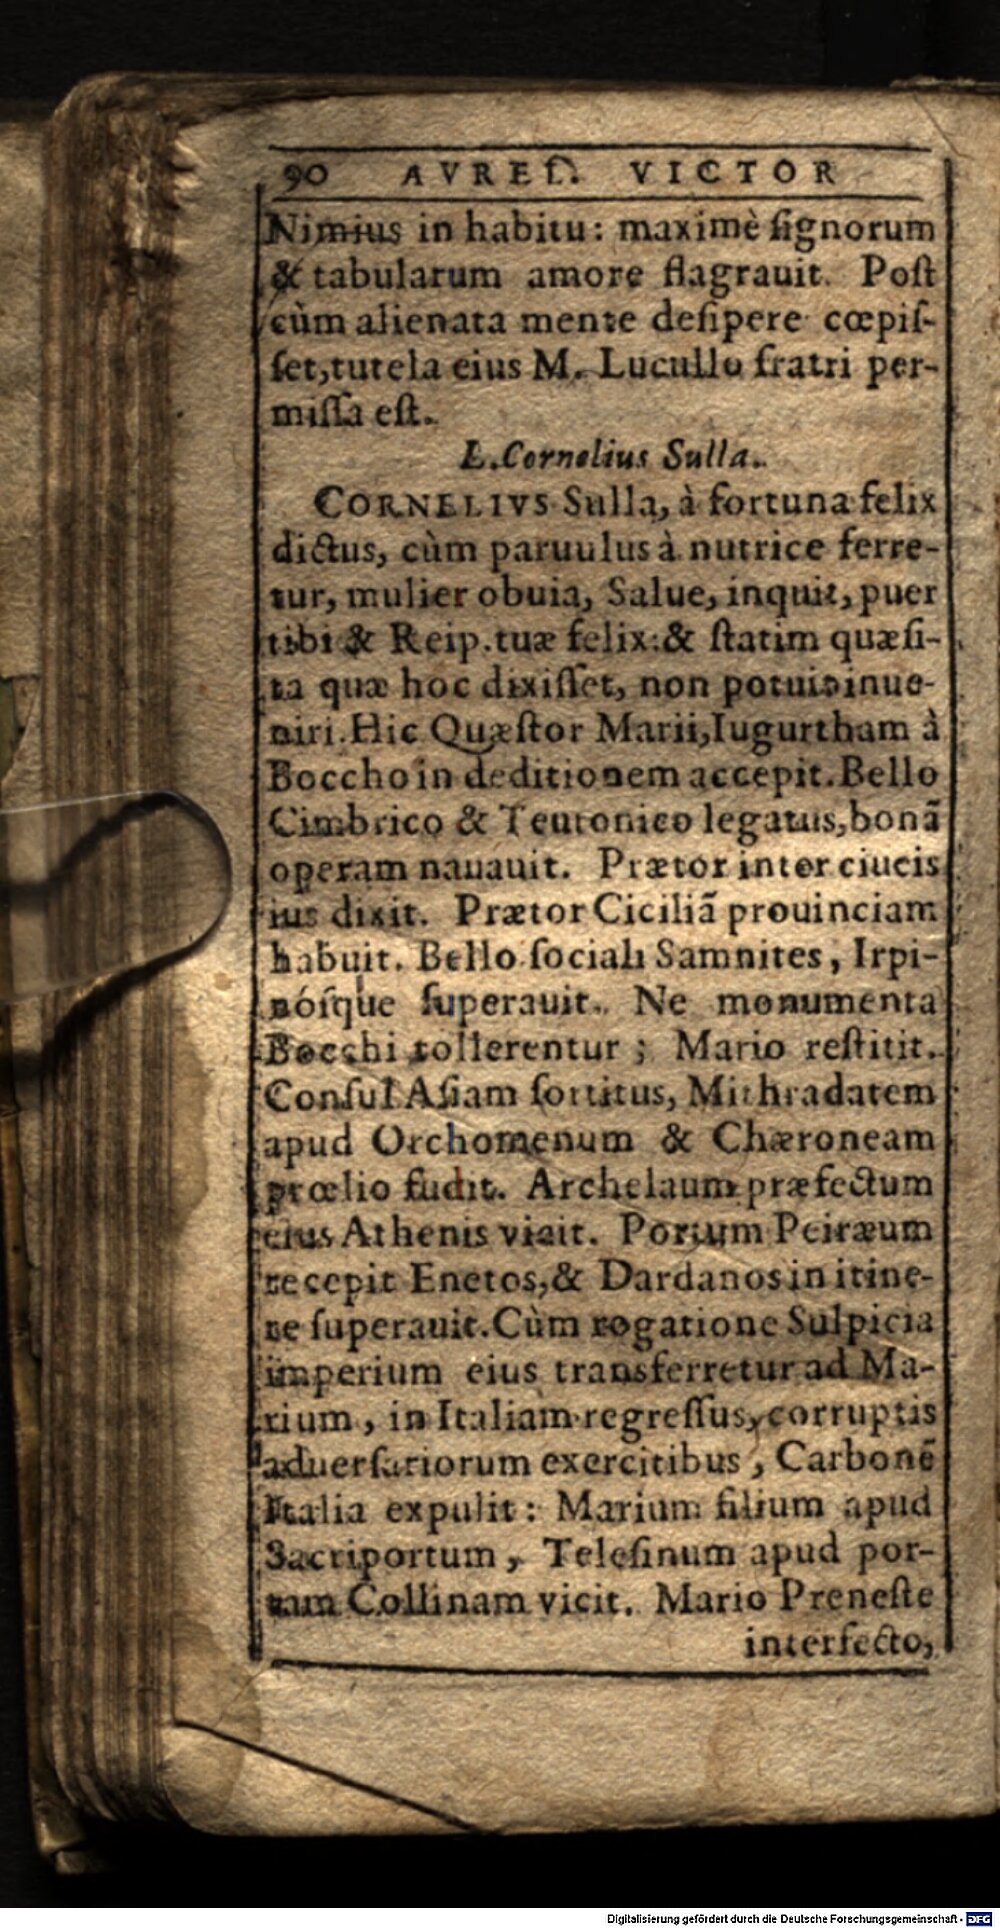 90 AVREL. VICTOR
Nimius in habitu: maximè ſignorum
& tabularum amore flagrauit. Poſt
cùm alienata mente deſipere cœpiſ-
ſet, tutela eius M. Lucullo fratri per-
miſſa eſt.
L. Cornelius Sulla.
CORNELIVS Sulla, à fortuna felix
dictus, cùm paruulus à nutrice ferre-
tur, mulier obuia, Salue, inquit, puer
tibi & Reip. tuæ felix: & ſtatim quæſi-
ta quæ hoc dixiſſet, non potuit inue-
niri. Hic Quæſtor Marii, Iugurtham à
Boccho in deditionem accepit. Bello
Cimbrico & Teutonico legatus, bonā
operam nauauit. Prætor inter ciueis
ius dixit. Prætor Ciciliā prouinciam
habuit. Bello ſociali Samnites, Irpi-
nóſque ſuperauit. Ne monumenta
Bocchi tollerentur; Mario reſtitit.
Conſul Aſiam ſortitus, Mithradatem
apud Orchomenum & Chæroneam
prœlio fudit. Archelaum præfectum
eius Athenis vicit. Portum Peiræum
recepit Enetos, & Dardanos in itine-
re ſuperauit. Cùm rogatione Sulpicia
imperium eius transferretur ad Ma-
rium, in Italiam regreſſus, corruptis
aduerſariorum exercitibus, Carbonē
Italia expulit: Marium filium apud
Sacriportum, Teleſinum apud por-
tam Collinam vicit. Mario Preneſte
interfecto,
Digitalisierung gefördert durch die Deutsche Forschungsgemeinschaft - DFG